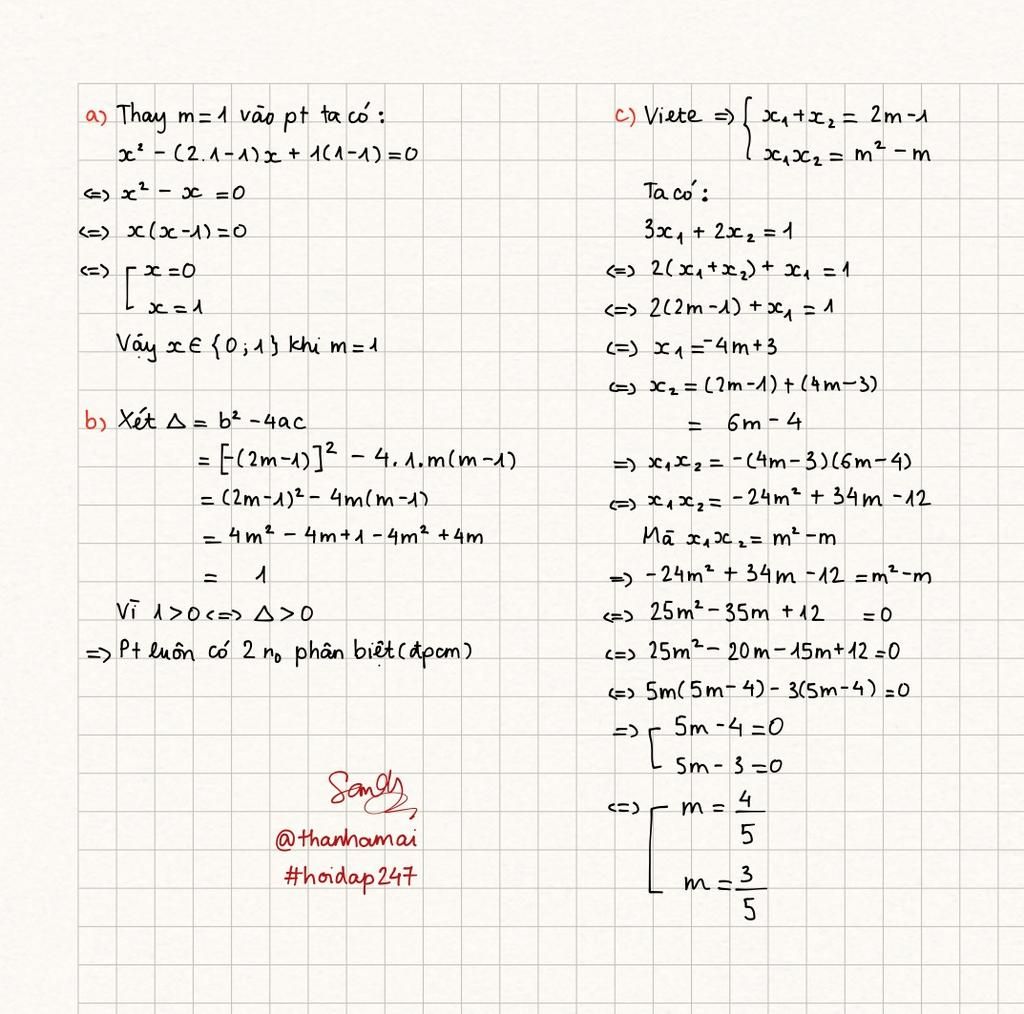 a) Thay m=1 vào pt ta có:
x² - (2.1-1)x + 1(1-1)=0
<=> x² - x = 0
<=> x(x-1)=0
<=> [ x=0
x=1
Vậy x∈{0;1} khi m=1
b) Xét Δ = b² - 4ac
= [-(2m-1)]² - 4.1.m(m-1)
= (2m-1)² - 4m(m-1)
= 4m² - 4m+1 - 4m² + 4m
= 1
Vì 1>0 <=> Δ>0
=> Pt luôn có 2 n₀ phân biệt (đpcm)
Sandy
@thanhamai
#hoidap247
c) Viete => { x₁+x₂ = 2m-1
x₁x₂ = m² - m
Ta có:
3x₁ + 2x₂ = 1
<=> 2(x₁+x₂) + x₁ = 1
<=> 2(2m-1) + x₁ = 1
<=> x₁ = -4m+3
<=> x₂ = (2m-1)+(4m-3)
= 6m-4
=> x₁x₂ = -(4m-3)(6m-4)
<=> x₁x₂ = -24m² + 34m - 12
Mà x₁x₂ = m²-m
=> -24m² + 34m - 12 = m²-m
<=> 25m² - 35m + 12 = 0
<=> 25m² - 20m - 15m + 12 = 0
<=> 5m(5m-4) - 3(5m-4) = 0
=> [ 5m-4=0
5m-3=0
<=> [ m = 4/5
m = 3/5